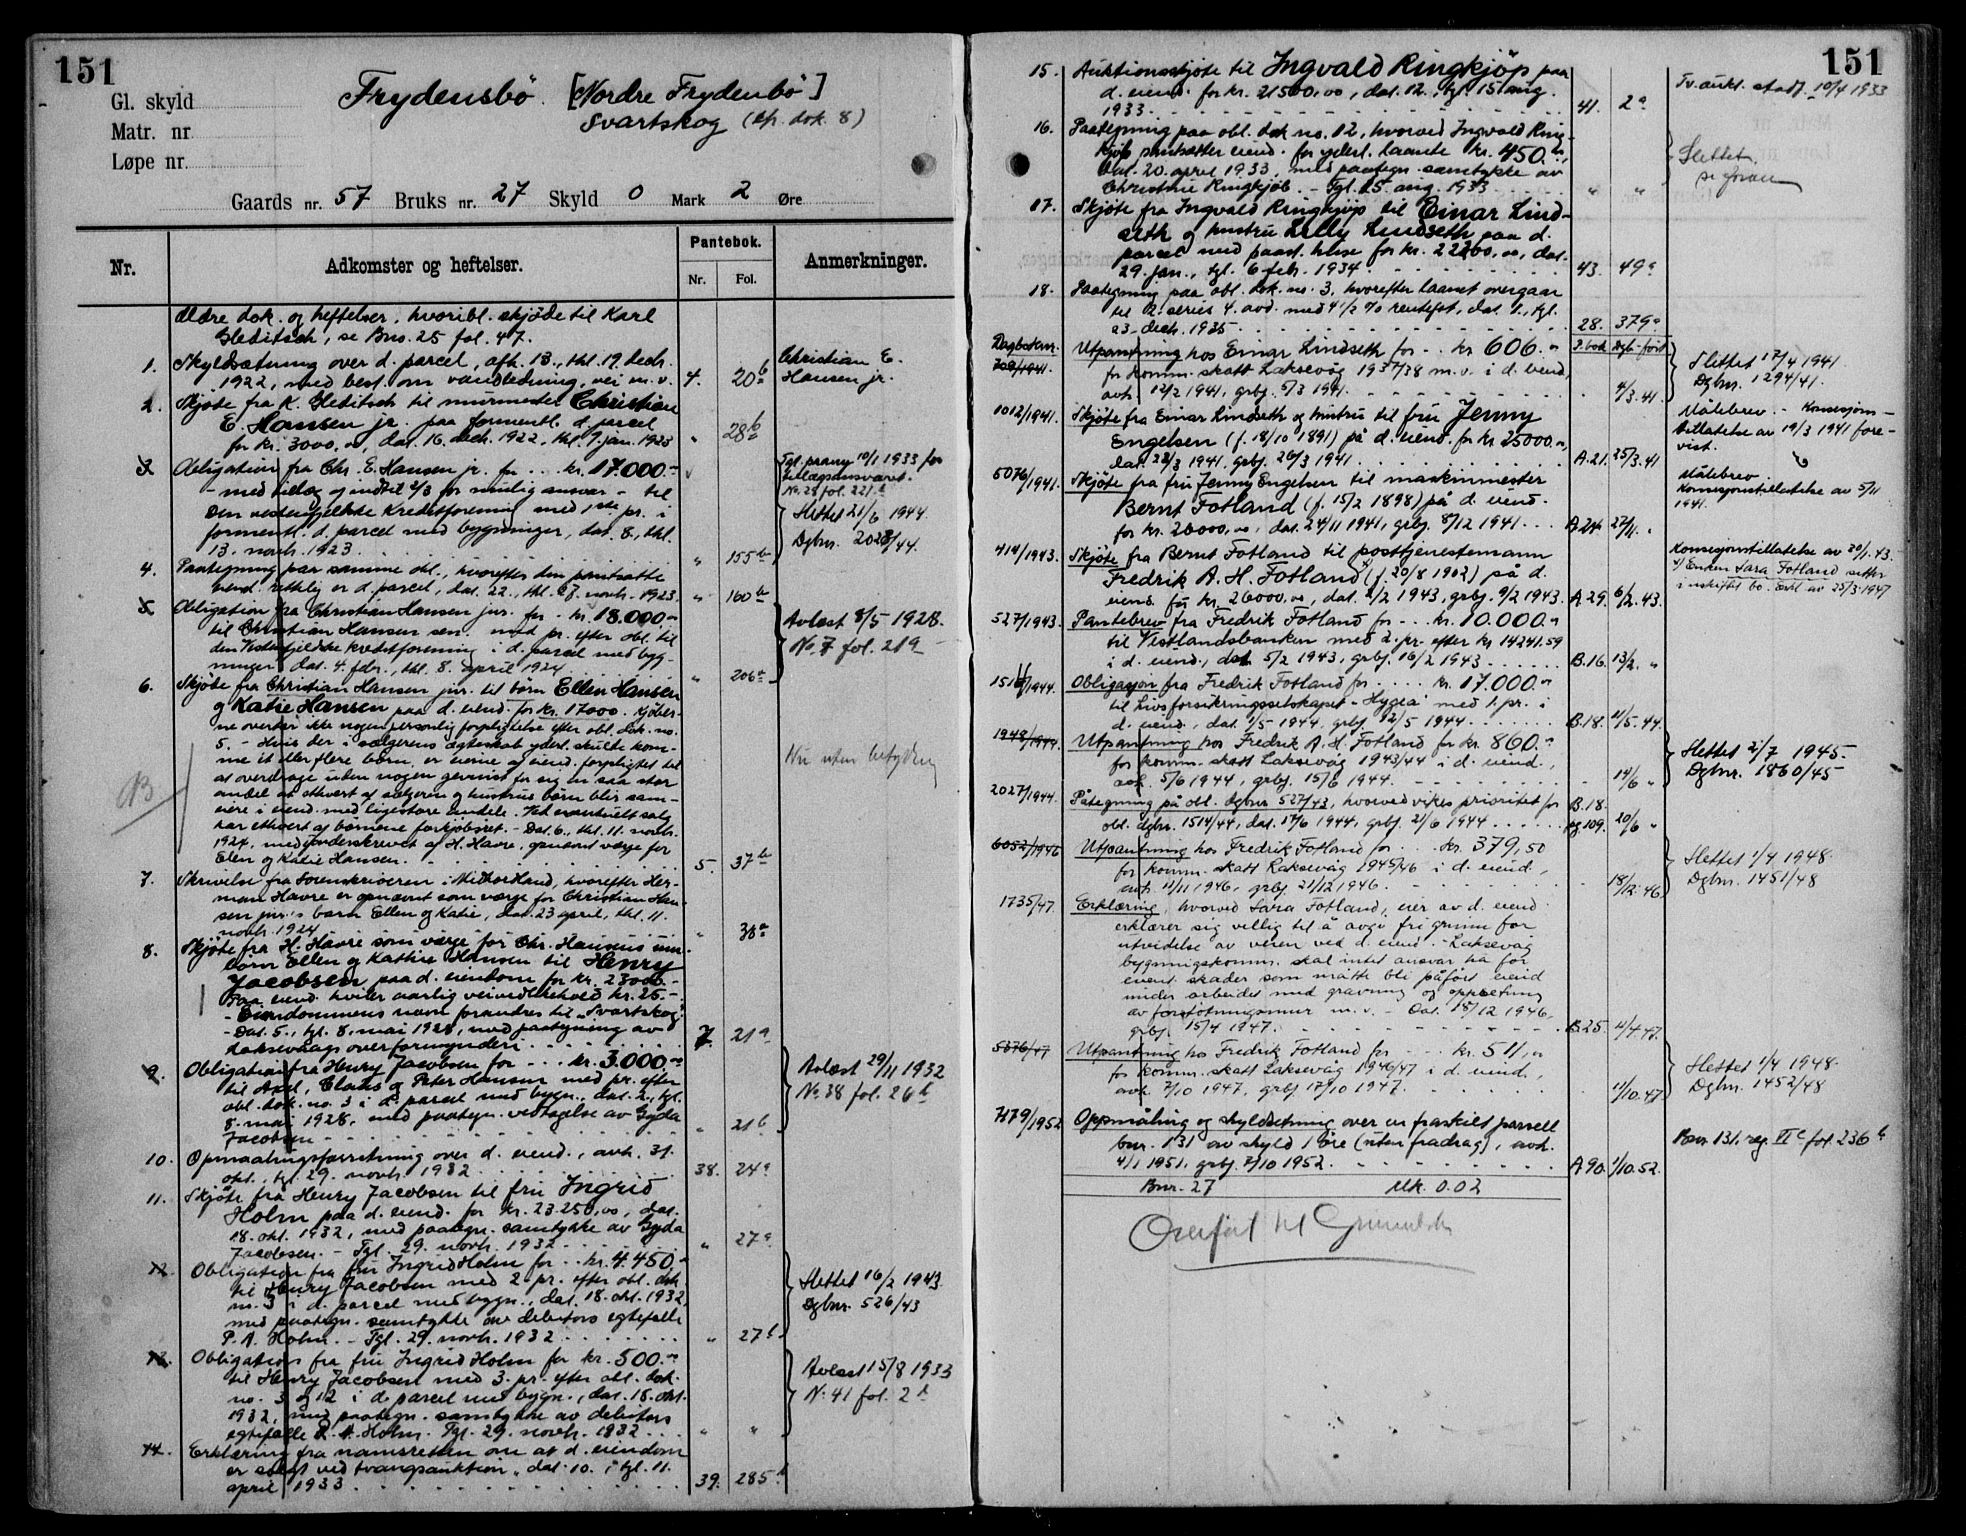 151
Gl. skyld
Matr. nr.
Løpe nr.
Frydensbö. [Nordre Frydenbö]
Svartskog (efr. dok. 8)
Gaards nr. 57 Bruks nr. 27 Skyld 0 Mark 2 Øre
Nr. Adkomster og heftelser. Pantebok. Nr. Fol. Anmerkninger.
Ældre dok. og heftelser, hvoribl. skjøde til Karl
Gleditsch, se Bno. 25 fol. 47.
1. Skyldsætning over d. parcel, afh. 13., thl. 19. decb. Christian E.
1922, med best. om vandledning, vei m. v. 4. 20b Hansen jr.
2. Skjøte fra K. Gleditsch til murmester Christian
E. Hansen jr. paa formentl. d. parcel
for kr. 3000,00, dat. 16. decb. 1922, thl. 9. jan. 1923 " 28b
3. Obligation fra Chr. E. Hansen jr. for ... kr. 17.000.-
Tgl. 10/1 1933 for
tillægsansvaret.
No. 28 fol. 221
- med tillæg og indtil 2/3 for mulig ansvar - til
Den vestenfjeldske Kreditforening med 1ste pr. i
formentl. d. parcel med bygninger, dat. 8., thl.
13. novb. 1923 " 155b
Slettet 21/6 1944.
Dgbnr. 2028/44.
4. Paategning paa samme obl., hvorefter den pantsatte
eiend. rettelig er d. parcel, dat. 22., thl. 27. novb. 1923. " 160b
5. Obligation fra Christian Hansen jnr. for .. kr. 18.000.-
til Christian Hansen sen. med pr. efter obl. til
den Vestenfjeldske Kreditforening i d. parcel med byg-
ninger, dat. 4. febr., thl. 8. april 1924 " 206a
Avlæst 8/5 1928.
No. 7 fol. 219
6. Skjøte fra Christian Hansen jnr. til børn Ellen Hansen
og Katie Hansen paa d. eiend. for kr. 17000. Kjøber-
ne overtar ikke nogen personlig forpligtelse efter obl. dok. no.
5. - Hvis der i sælgerens ægteskab yderl. skulde kom-
me et eller flere børn, er eierne af eiend. forpligtet til
at overdrage uden nogen gevinst for sig en saa stor
andel at ethvert af sælgeren og hustrus børn blir sam-
eiere i eiend. med ligestore andele. Ved eventuelt salg
har ethvert af børnene forkjøbsret. - Dat. 6., thl. 11. novb.
1924, medunderskrevet af H. Havre, opnævnt værge for
Ellen og Katie Hansen. 5. 37b
NB
Nu uten betydning
7. Skrivelse fra Sorenskriveren i Midhordland, hvorefter Her-
man Havre er opnævnt som værge for Christian Han-
sen jnr.'s barn Ellen og Katie, dat. 23 april, thl. 11.
novb. 1924 " 38a
8. Skjøte fra H. Havre som værge for Chr. Hansens um.
børn Ellen og Kathie Hansen til Henry
Jacobsen paa d. eiendom for kr. 23000.-
Paa eiend. hviler aarlig veivedlikehold kr. 25.-
- Eiendommens navn forandres til "Svartskog".
- Dat. 5., tgl. 8. mai 1928, med paategning av
Laksevaags overformynderi 7. 21a
9. Obligation fra Henry Jacobsen for ... kr. 3.000.-
til Axel, Claus og Peter Hansen med pr. efter
obl. dok. no. 3 i d. parcel med bygn., dat. 2., tgl.
8. mai 1928, med paategn. vedtagelse av Gyda
Jacobsen " 21b
Avlæst 29/11 1932
No. 38 fol. 26b
10. Opmaalingsforretning over d. eiend., avh. 31.
okt., tgl. 29. novb. 1932 38. 24a
11. Skjøte fra Henry Jacobsen til fru Ingrid
Holm paa d. eiend. for kr. 23.250,00, dat.
18. okt. 1932, med paategn. samtykke av Gyda
Jacobsen. - Tgl. 29. novb. 1932 " 27a
12. Obligation fra fru Ingrid Holm for .. kr. 4.450.-
til Henry Jacobsen med 2 pr. efter obl. dok.
no. 3 i d. parcel med bygn., dat. 18. okt. 1932,
med paategn. samtykke av debitors egtefælle
P. A. Holm. - Tgl. 29. novb. 1932 " 27b
Slettet 16/2 1943.
Dgbnr. 526/43
13. Obligation fra fru Ingrid Holm for kr. 500.-
til Henry Jacobsen med 3. pr. efter obl. dok.
no. 3 og 12 i d. parcel med bygn., dat. 18. okt.
1932, med paategn. samtykke av debitors
egtefælle P. A. Holm. Tgl. 29. novb. 1932 " "
Avlæst 15/8 1933
No. 41 fol. 2
14. Erklæring fra namsretten om at d. eiendom
er solgt ved tvangsauktion, dat. 10., tgl. 11.
april 1933 39. 285
151
15. Auktionsskjøte til Ingvald Ringkjøp paa
d. eiend. for kr. 21500,00, dat. 12., tgl. 15. aug.
1933 41. 2a
Tv. aukt. stadf. 10/4 1933
16. Paategning paa obl. dok. no. 12, hvorved Ingvald Ring-
kjøp pantsætter eiend. for yderl. laante kr. 450.-,
dat. 20. april 1933, med paategn. samtykke av
Christine Ringkjøb. - Tgl. 15. aug. 1933 " "
Slettet.
se foran
17. Skjøte fra Ingvald Ringkjøp til Einar Lind-
seth og hustru Lilly Lindseth paa d.
parcel med paast. huse for kr. 22200,00, dat.
29. jan., tgl. 6 feb. 1934 43. 49a
18. Paategning paa obl. dok. no. 3, hvorefter laanet overgaar
til 12. series 4. avd. med 4 1/2 % rentefot, dat. 9., tgl.
23. decb. 1935 28. 379a
Dagboknr. P.bok Dgb. ført
729/1941. Utpantning hos Einar Lindseth for .. kr 606.-
for komm. skatt Laksevåg 1937/38 m. v. i d. eiend.,
avh. 12/2 1941, grbf. 5/3 1941. 4/3.41.
Slettet 17/4 1941.
Dgbnr. 1294/41.
1012/1941. Skjøte fra Einar Lindseth og hustru til fru Jenny
Engelsen (f. 18/10 1891) på d. eiend. for kr 25000.-,
dat. 22/3 1941, grbf. 26/3 1941. A.21. 25/3.41
Målebrev. - Konsesjons-
tillatelse av 19/3 1941 fore-
vist.
5076/1941. Skjøte fra fru Jenny Engelsen til maskinmester
Bernt Fotland (f. 15/2 1898) på d. eiend.
for kr. 26000,00, dat. 24/11 1941, grbf. 8/12 1941 A.24. 27/11. "
Målebrev.
Konsesjonstillatelse av 5/11
1941.
414/1943. Skjøte fra Bernt Fotland til posttjenestemann
Fredrik A. H. Fotland x) (f. 20/8 1902) på d.
eiend. for kr. 26000,00, dat. 2/2 1943, grbf. 9/2 1943. A.29. 6/2.43.
Konsesjonstillatelse av 20/1.43.
x) Enken Sara Fotland sitter
i uskiftet bo. Evkl. av 25/3.1947
527/1943. Pantebrev fra Fredrik Fotland for .. kr. 10.000.-
til Vestlandsbanken med 2. pr. efter kr 14241.59
i d. eiend., dat. 5/2 1943, grbf. 16/2 1943 B.16. 13/2. "
1514/1944. Obligasjon fra Fredrik Fotland for .... kr. 17.000.-
til Livsforsikringsselskapet "Hygea" med 1. pr. i
d. eiend., dat. 1/5 1944, grbf. 12/5 1944 B.18. 11/5.44.
1948/1944. Utpantning hos Fredrik A. H. Fotland for kr. 860.-
for komm. skatt Laksevåg 1943/44 i d. eiend.,
avh. 5/6 1944, grbf. 15/6 1944. - 14/6 "
Slettet 2/7 1945.
Dgbnr. 1860/45
2027/1944. Påtegning på obl. dgbnr 527/43, hvorved vikes prioritet for B.18.
obl. dgbn. 1514/44, dat. 17/6 1944, grbf. 21/6 1944 og 109. 20/6 "
6052/1946 Utpantning hos Fredrik Fotland for .... kr. 379,50
for komm. skatt Laksevåg 1945/46 i d. eiend.,
avh. 11/11 1946, grbf. 21/12 1946. - 18/12.46.
Slettet 1/4 1948.
Dgbnr. 1451/48
1735/47. Erklæring, hvorved Sara Fotland, eier av d. eiend.
erklærer sig villig til å avgi fri grunn for
utvidelse av veien ved d. eiend. - Laksevåg
bygningskomm. skal intet ansvar ha for
event. skader som måtte bli påført eiend.
under arbeidet med gravning og oppsetning
av forstøtningsmur m. v. - Dat. 18/12 1946,
grbf. 15/4 1947. B.25. 11/4.47.
5376/47 Utpantning hos Fredrik Fotland for .... kr. 511,00
for komm. skatt Laksevåg 1946/47 i d. eiend.,
avh. 7/10 1947, grbf. 17/10 1947. 11/10.47.
Slettet 1/4 1948.
Dgbnr. 1452/48
7179/1952 Oppmåling og skyldsetning over en fraskilt parsell
bnr. 131 av skyld 1 øre (uten fradrag), avh.
4/1 1951, grbf. 7/10 1952. A.90. 1/10.52.
Bnr. 131, reg. IIc fol. 236b
Bnr. 27 Mk. 0.02
Overført til